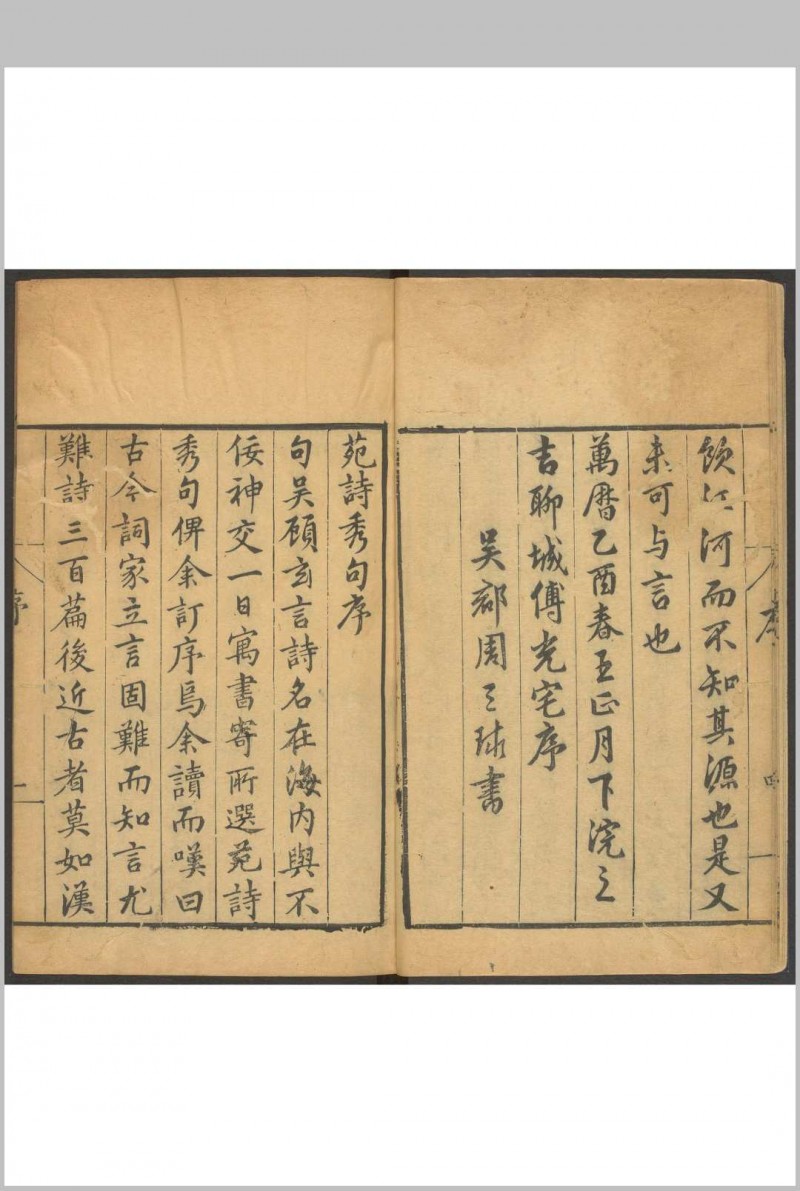 飲江河而不知其源也是又
未可与言也
萬曆乙酉春王正月下浣之
吉聊城傅光宅序
吳郡周之球書
苑詩秀句序
句吳顧玄言詩名在海內與不
佞神交一日寓書寄所選苑詩
秀句俾余訂序焉余讀而嘆曰
古今詞家立言固難而知言尤
難詩三百篇後近古者莫如漢
序
二